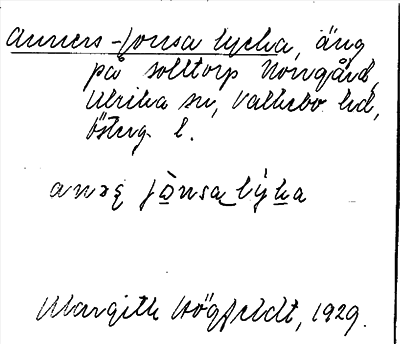 Anners-Jonsa lycka, äng
på Solltorp Norrgård,
Ulrika sn, Valkebo hd,
Österg. l.
jònsa lýka
Margith Högfeldt, 1929.